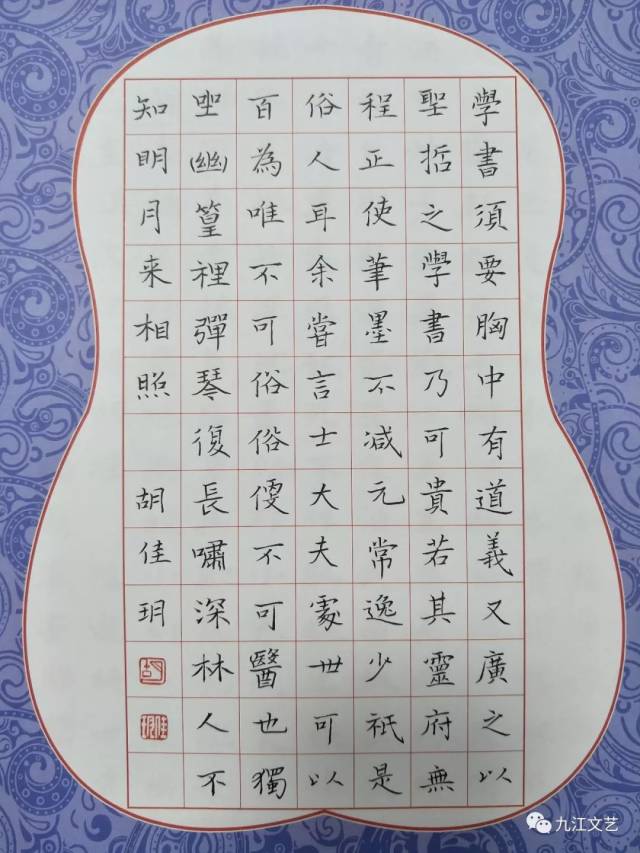 學書須要胸中有道義又廣之以
聖哲之學書乃可貴若其靈府無
程正使筆墨不減元常逸少祇是
俗人耳余嘗言士大夫處世可以
百為唯不可俗俗便不可醫也獨
坐(幽)篁裡彈琴復長嘯深林人不
知明月来相照 胡佳玥
九江文艺